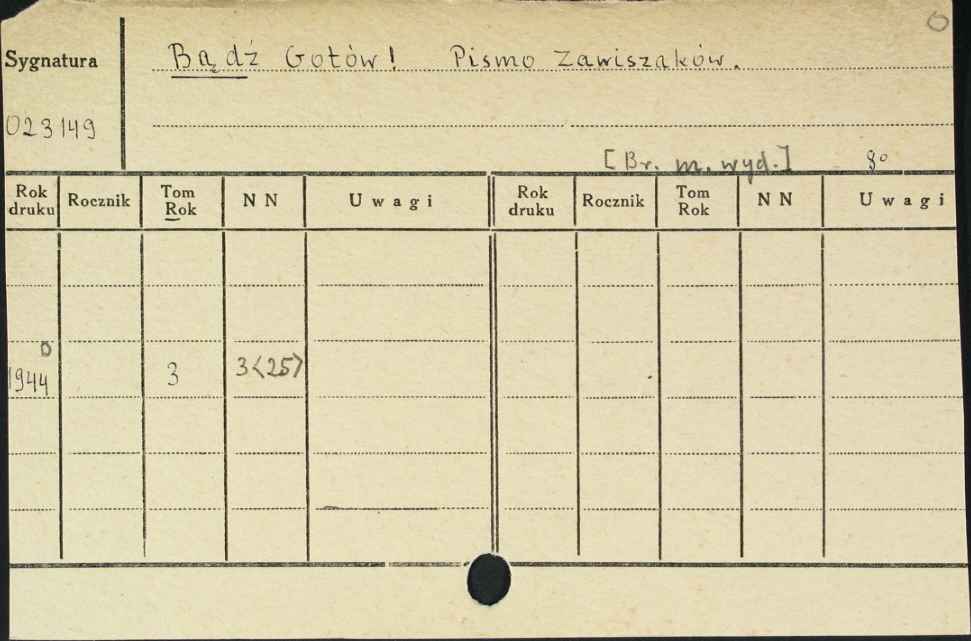 O
Sygnatura
Bądź Gotów! Pismo Zawiszaków.
023149
[Br. m. wyd.] 8°
Rok druku Rocznik Tom Rok NN Uwagi Rok druku Rocznik Tom Rok NN Uwagi
0
1944 3 3<25>